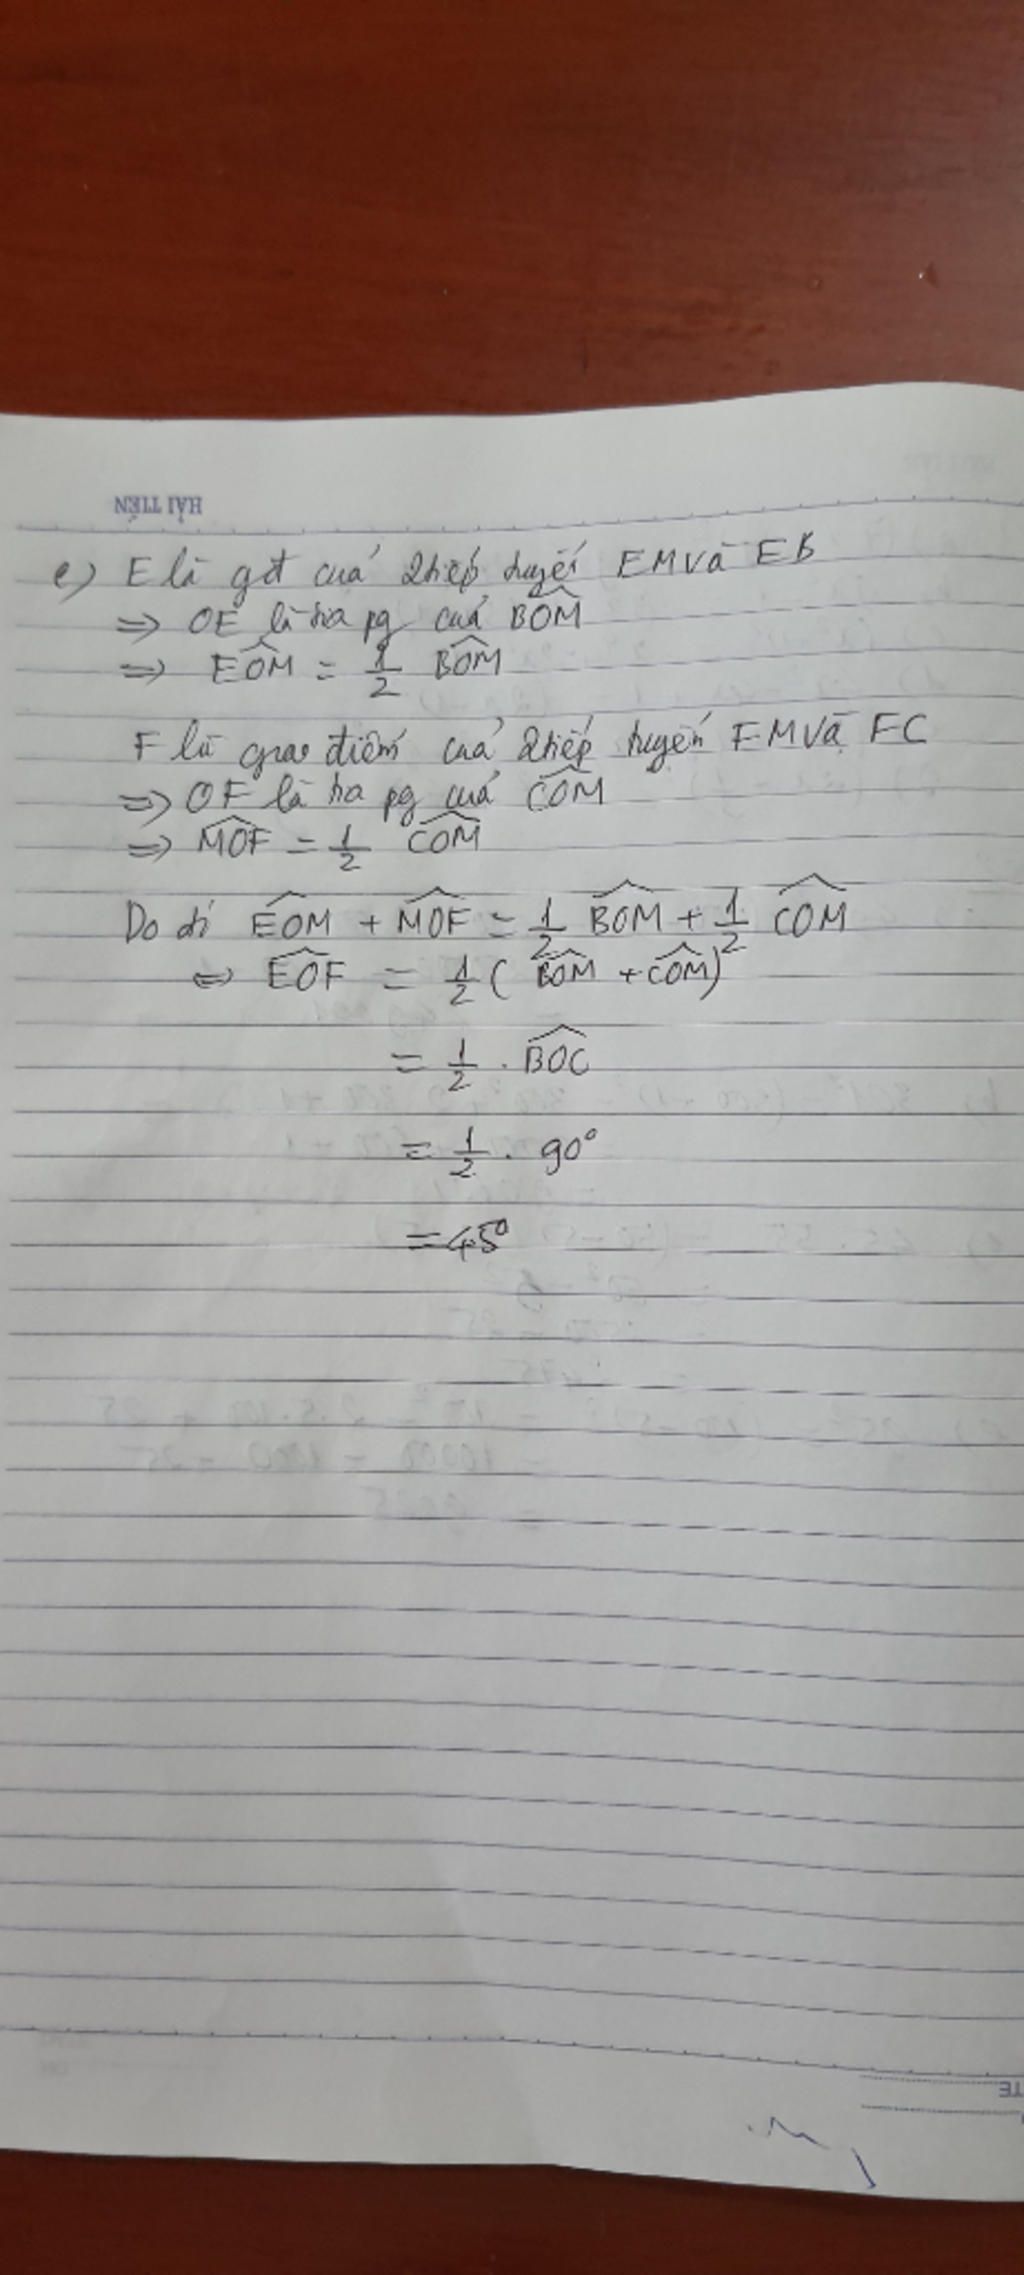 HẢI TIẾN
e) E là gđ cuả 2 tiếp tuyến EM và EB
=> OE là tia pg cuả \widehat{BOM}
=> \widehat{EOM} = \frac{1}{2} \widehat{BOM}
F là giao điểm cuả 2 tiếp tuyến FM và FC
=> OF là tia pg cuả \widehat{COM}
=> \widehat{MOF} = \frac{1}{2} \widehat{COM}
Do đó \widehat{EOM} + \widehat{MOF} = \frac{1}{2} \widehat{BOM} + \frac{1}{2} \widehat{COM}
<=> \widehat{EOF} = \frac{1}{2} ( \widehat{BOM} + \widehat{COM} )
= \frac{1}{2} . \widehat{BOC}
= \frac{1}{2} . 90°
= 45°